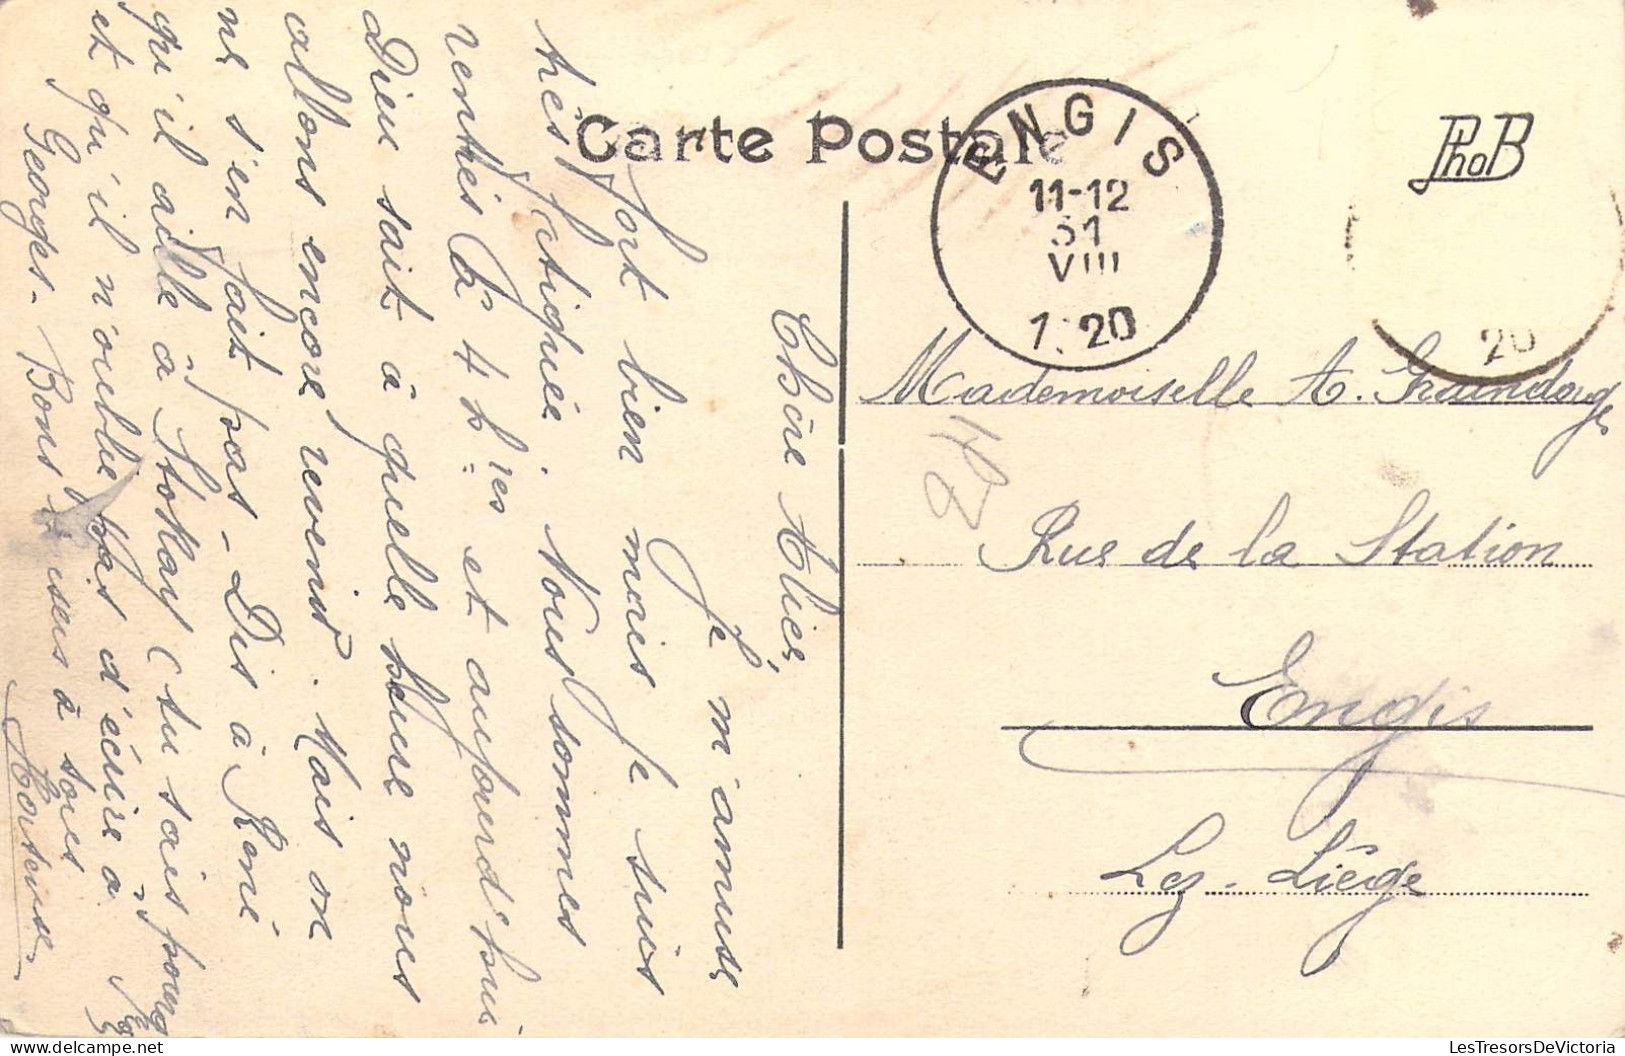 Carte Postale
PhoB
ENGIS
11-12
31
VIII
1920
20
Mademoiselle A. Graindorge
Rue de la Station
Engis
Lez-Liége
Chère Alice,
Je m'amuse
fort bien mais je suis
très fatiguée. Nous sommes
rentrés à 4 h res et aujourd'hui
Dieu sait à quelle heure nous
allons encore revenir. Mais on
ne s'en fait pas - Dis à René
qu'il aille à Stokay (tu sais pourq
et qu'il n'oublie pas d'écrire à
Georges. Bons baisers à tous
Hortense
LesTresorsDeVictoria